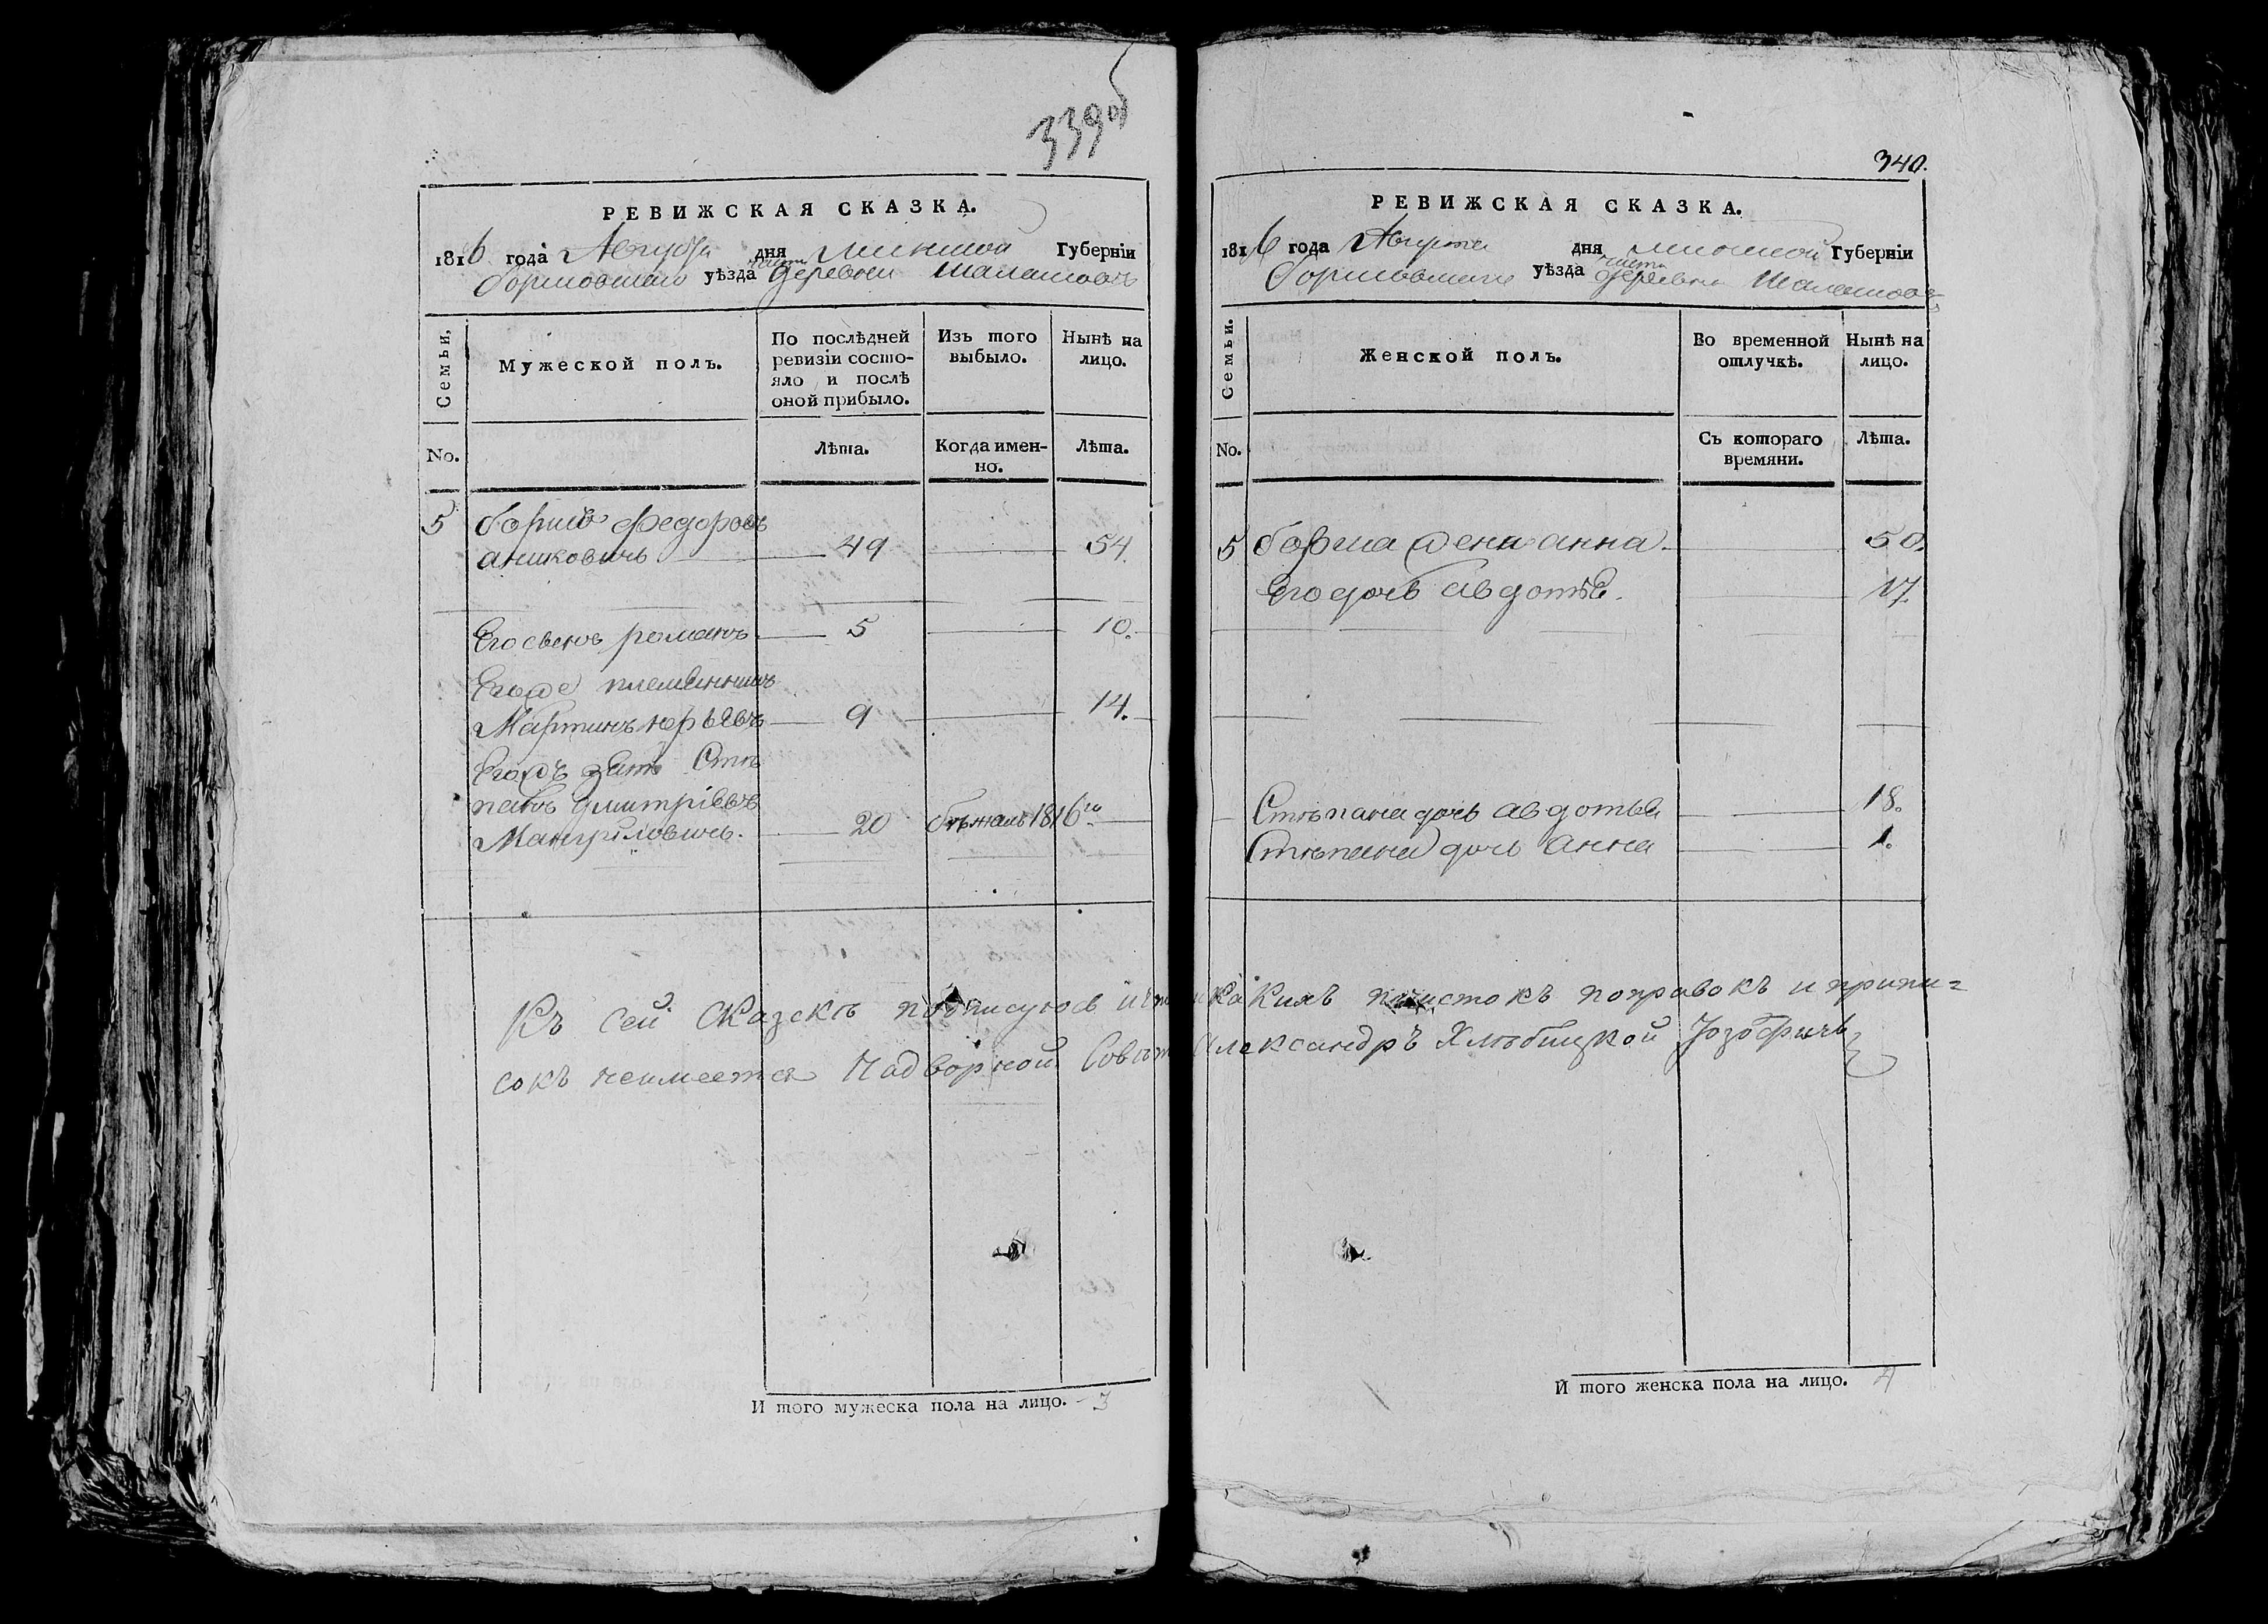 339об
РЕВИЖСКАЯ СКАЗКА.
1816 года Августа дня Минской Губерніи
Борисовскаго уѣзда части деревни Шалашовъ
Семьи,
Мужеской полъ.
По послѣдней ревизіи состо-
яло и послѣ
оной прибыло.
Изъ того
выбыло.
Нынѣ на
лицо.
No.
Лѣта.
Когда имен-
но.
Лѣта.
5 борисъ федоровъ
аниковичь 49 54.
Его сынъ романъ 5 10.
Егоже племенникъ
Мартинъ юрьевъ 9 14.
Егожъ зять Стѣ
панъ дмитріевъ 20 бѣжалъ 1816го
И того мужеска пола на лицо. 3
340.
РЕВИЖСКАЯ СКАЗКА.
1816 года Августа дня Минской Губерніи
Борисовскаго уѣзда части деревни Шалашовъ
Семьи.
Женской полъ.
Во временной
отлучкѣ.
Нынѣ на
лицо.
No.
Съ котораго
времяни.
Лѣта.
5 бориса жена анна 50.
Его дочь авдотье. 17.
Стѣпана дочь авдотье 18.
Стѣпана дочь анна 1.
Къ сей Сказскѣ подписуюсь и что никакихъ пристокъ поправокъ и припи=
сокъ неимеетса Надворной Совѣт Александръ Хлѣбицкой Іозофичь
И того женска пола на лицо. 4